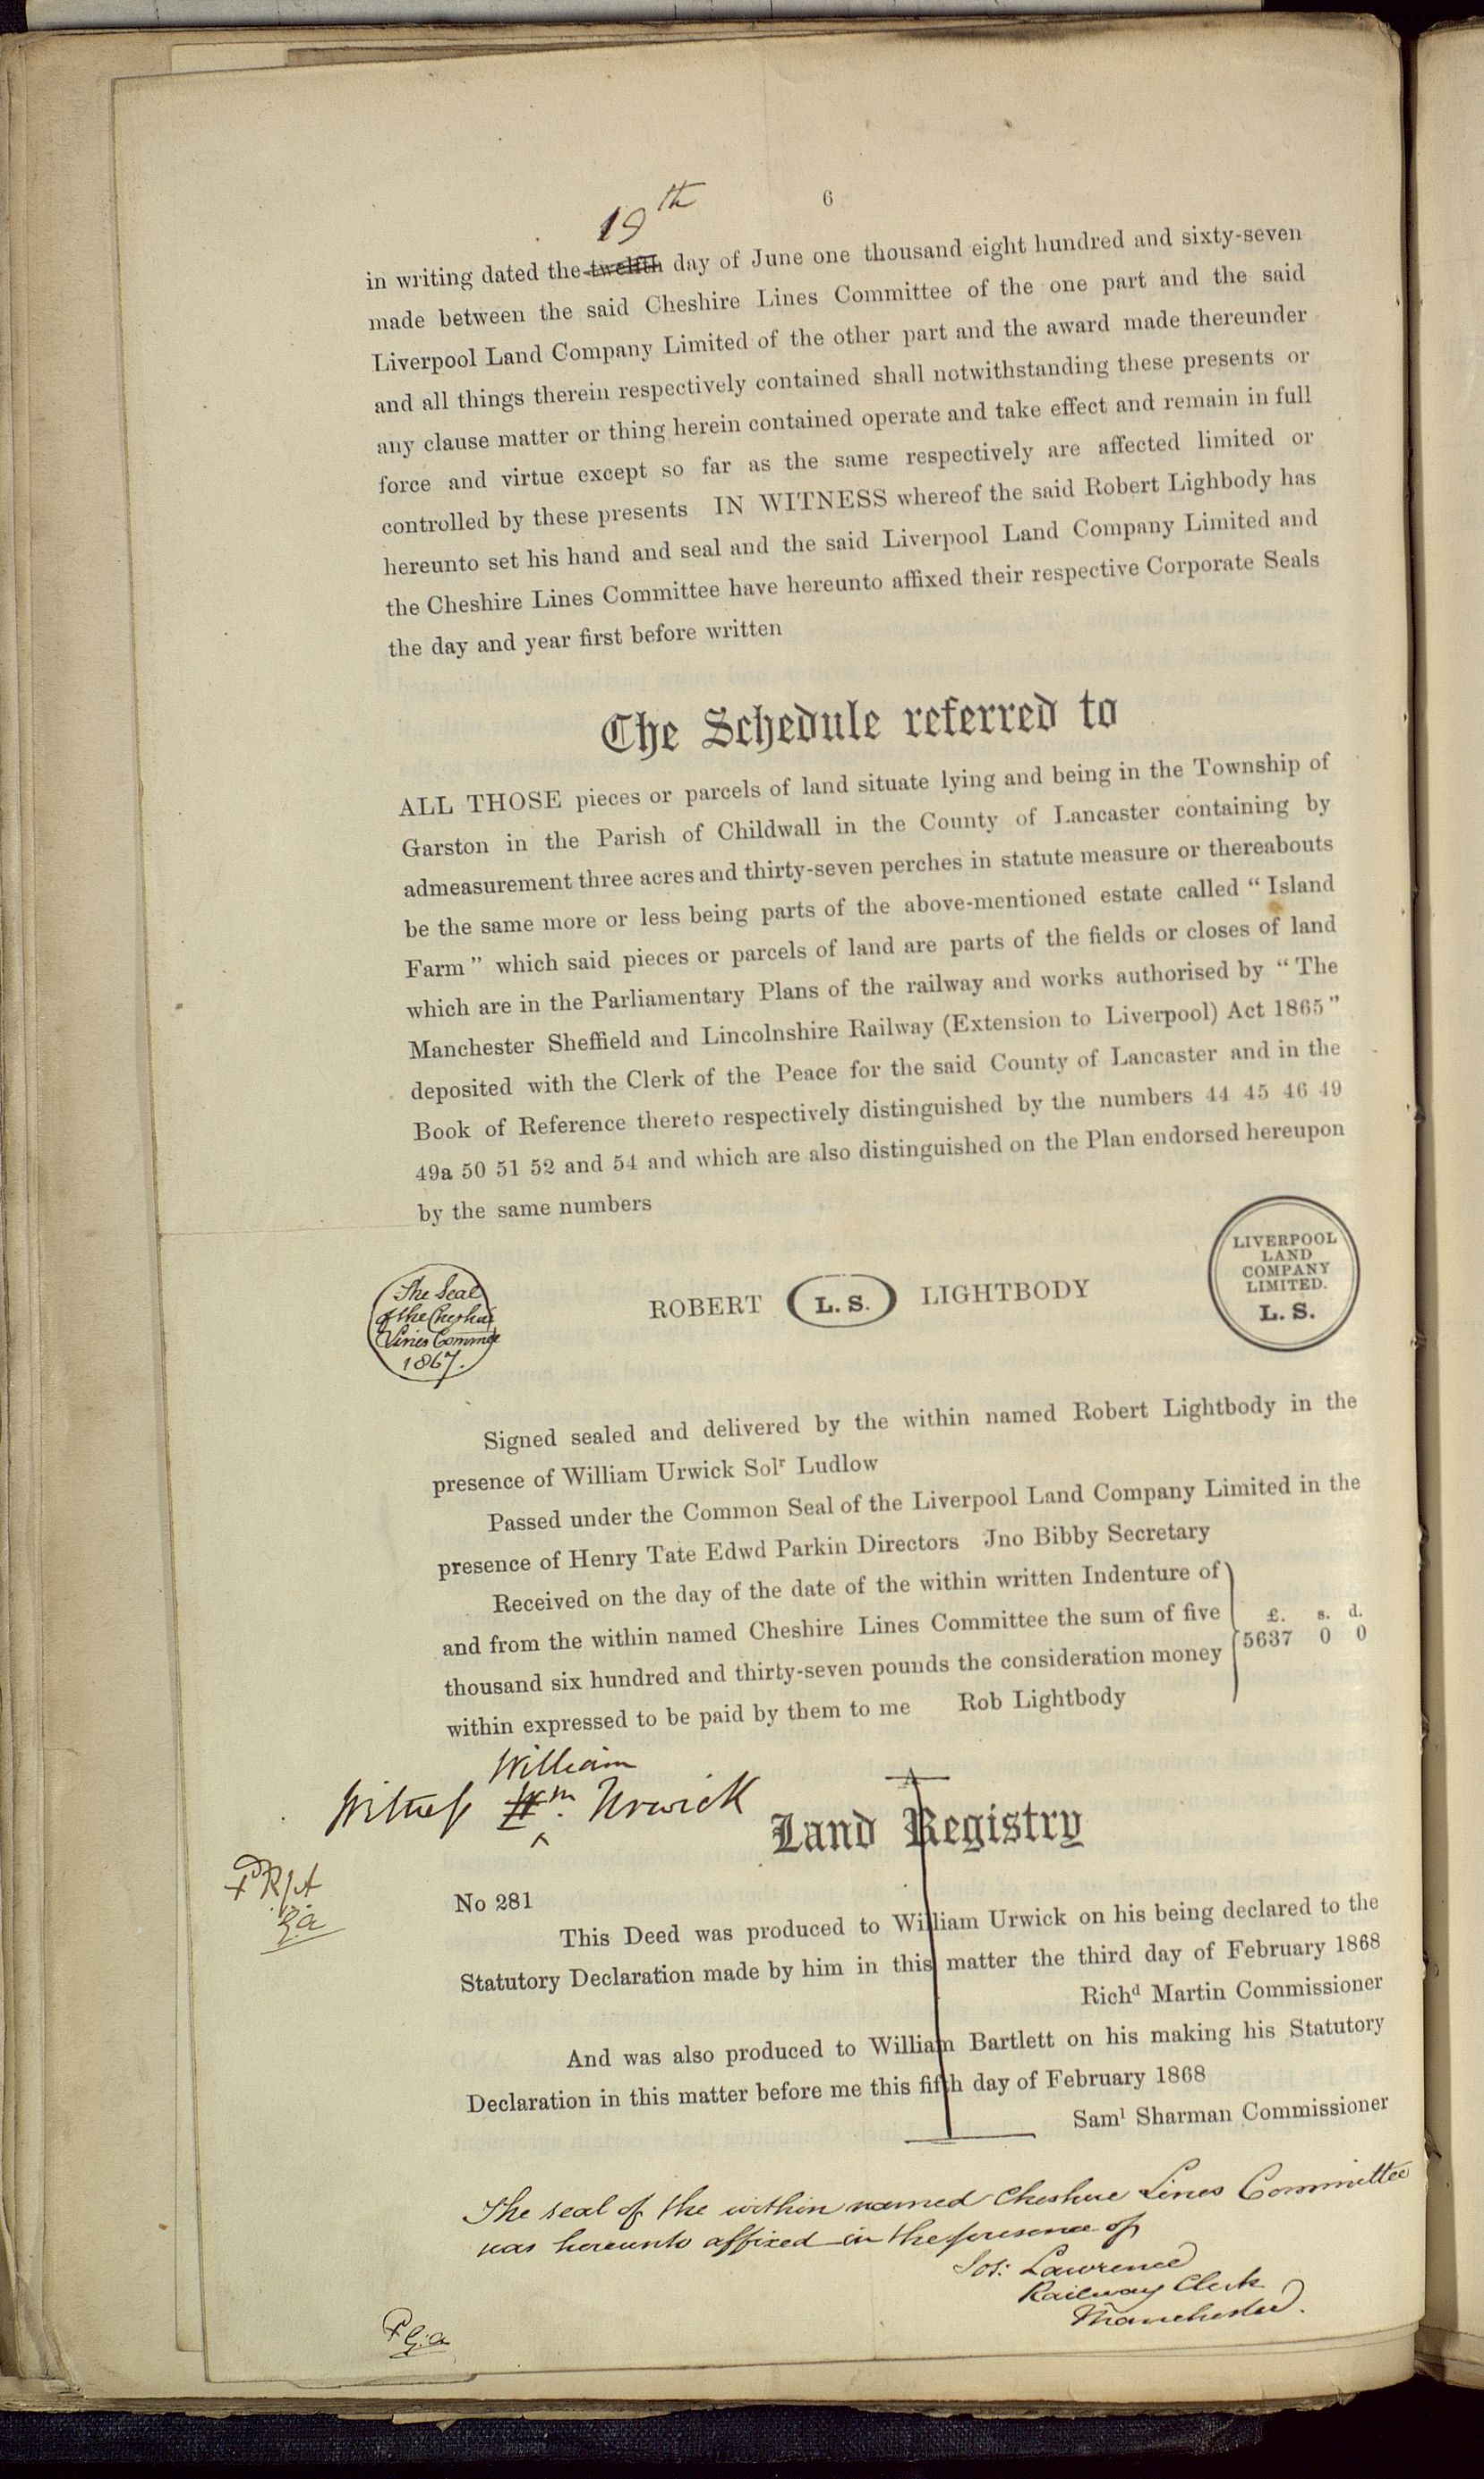 6
19th
in writing dated the twelfth day of June one thousand eight hundred and sixty-seven
made between the said Cheshire Lines Committee of the one part and the said
Liverpool Land Company Limited of the other part and the award made thereunder
and all things therein respectively contained shall notwithstanding these presents or
any clause matter or thing herein contained operate and take effect and remain in full
force and virtue except so far as the same respectively are affected limited or
controlled by these presents IN WITNESS whereof the said Robert Lighbody has
hereunto set his hand and seal and the said Liverpool Land Company Limited and
the Cheshire Lines Committee have hereunto affixed their respective Corporate Seals
the day and year first before written
The Schedule referred to
ALL THOSE pieces or parcels of land situate lying and being in the Township of
Garston in the Parish of Childwall in the County of Lancaster containing by
admeasurement three acres and thirty-seven perches in statute measure or thereabouts
be the same more or less being parts of the above-mentioned estate called “ Island
Farm ” which said pieces or parcels of land are parts of the fields or closes of land
which are in the Parliamentary Plans of the railway and works authorised by “ The
Manchester Sheffield and Lincolnshire Railway (Extension to Liverpool) Act 1865 ”
deposited with the Clerk of the Peace for the said County of Lancaster and in the
Book of Reference thereto respectively distinguished by the numbers 44 45 46 49
49a 50 51 52 and 54 and which are also distinguished on the Plan endorsed hereupon
by the same numbers
The Seal
of the Cheshire
Lines Commee
1867.
ROBERT L. S. LIGHTBODY
LIVERPOOL
LAND
COMPANY
LIMITED.
L. S.
Signed sealed and delivered by the within named Robert Lightbody in the
presence of William Urwick Solr Ludlow
Passed under the Common Seal of the Liverpool Land Company Limited in the
presence of Henry Tate Edwd Parkin Directors Jno Bibby Secretary
Received on the day of the date of the within written Indenture of
and from the within named Cheshire Lines Committee the sum of five £. s. d.
thousand six hundred and thirty-seven pounds the consideration money 5637 0 0
within expressed to be paid by them to me Rob Lightbody
William
Witness Wm. Urwick
Land Registry
No 281
This Deed was produced to William Urwick on his being declared to the
Statutory Declaration made by him in this matter the third day of February 1868
Richd Martin Commissioner
And was also produced to William Bartlett on his making his Statutory
Declaration in this matter before me this fifth day of February 1868
Saml Sharman Commissioner
The seal of the within named Cheshire Lines Committee
was hereunto affixed in the presence of
Jos: Lawrence
Railway Clerk
Manchester.